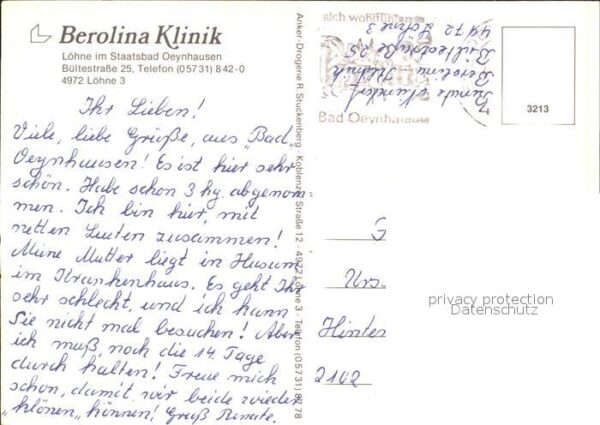 Berolina Klinik
Löhne im Staatsbad Oeynhausen
Bültestraße 25, Telefon (05731) 842-0
4972 Löhne 3
Ihr Lieben!
Viele, liebe Grüße, aus "Bad"
Oeynhausen! Es ist hier sehr
schön. Habe schon 3 kg. abgenom-
men. Ich bin hier, mit
netten Leuten zusammen!
Meine Mutter liegt in Husum
im Krankenhaus. Es geht Ihr
sehr schlecht, und ich kann
Sie nicht mal besuchen! Aber
ich muß, noch die 14 Tage
durch halten! Freue mich
schon, damit wir beide wieder
"klönen" können! Gruß Renate.
Anker-Drogerie R Stuckenberg · Koblenzer Straße 12 · 4972 Löhne 3 · Telefon (05731) 82 78
sich wohlfühlen
Bad Oeynhausen
Renate
Berolina Klinik
Bültestraße 25
4972 Löhne 3
3213
G
Urs.
Hinter
2102
privacy protection
Datenschutz